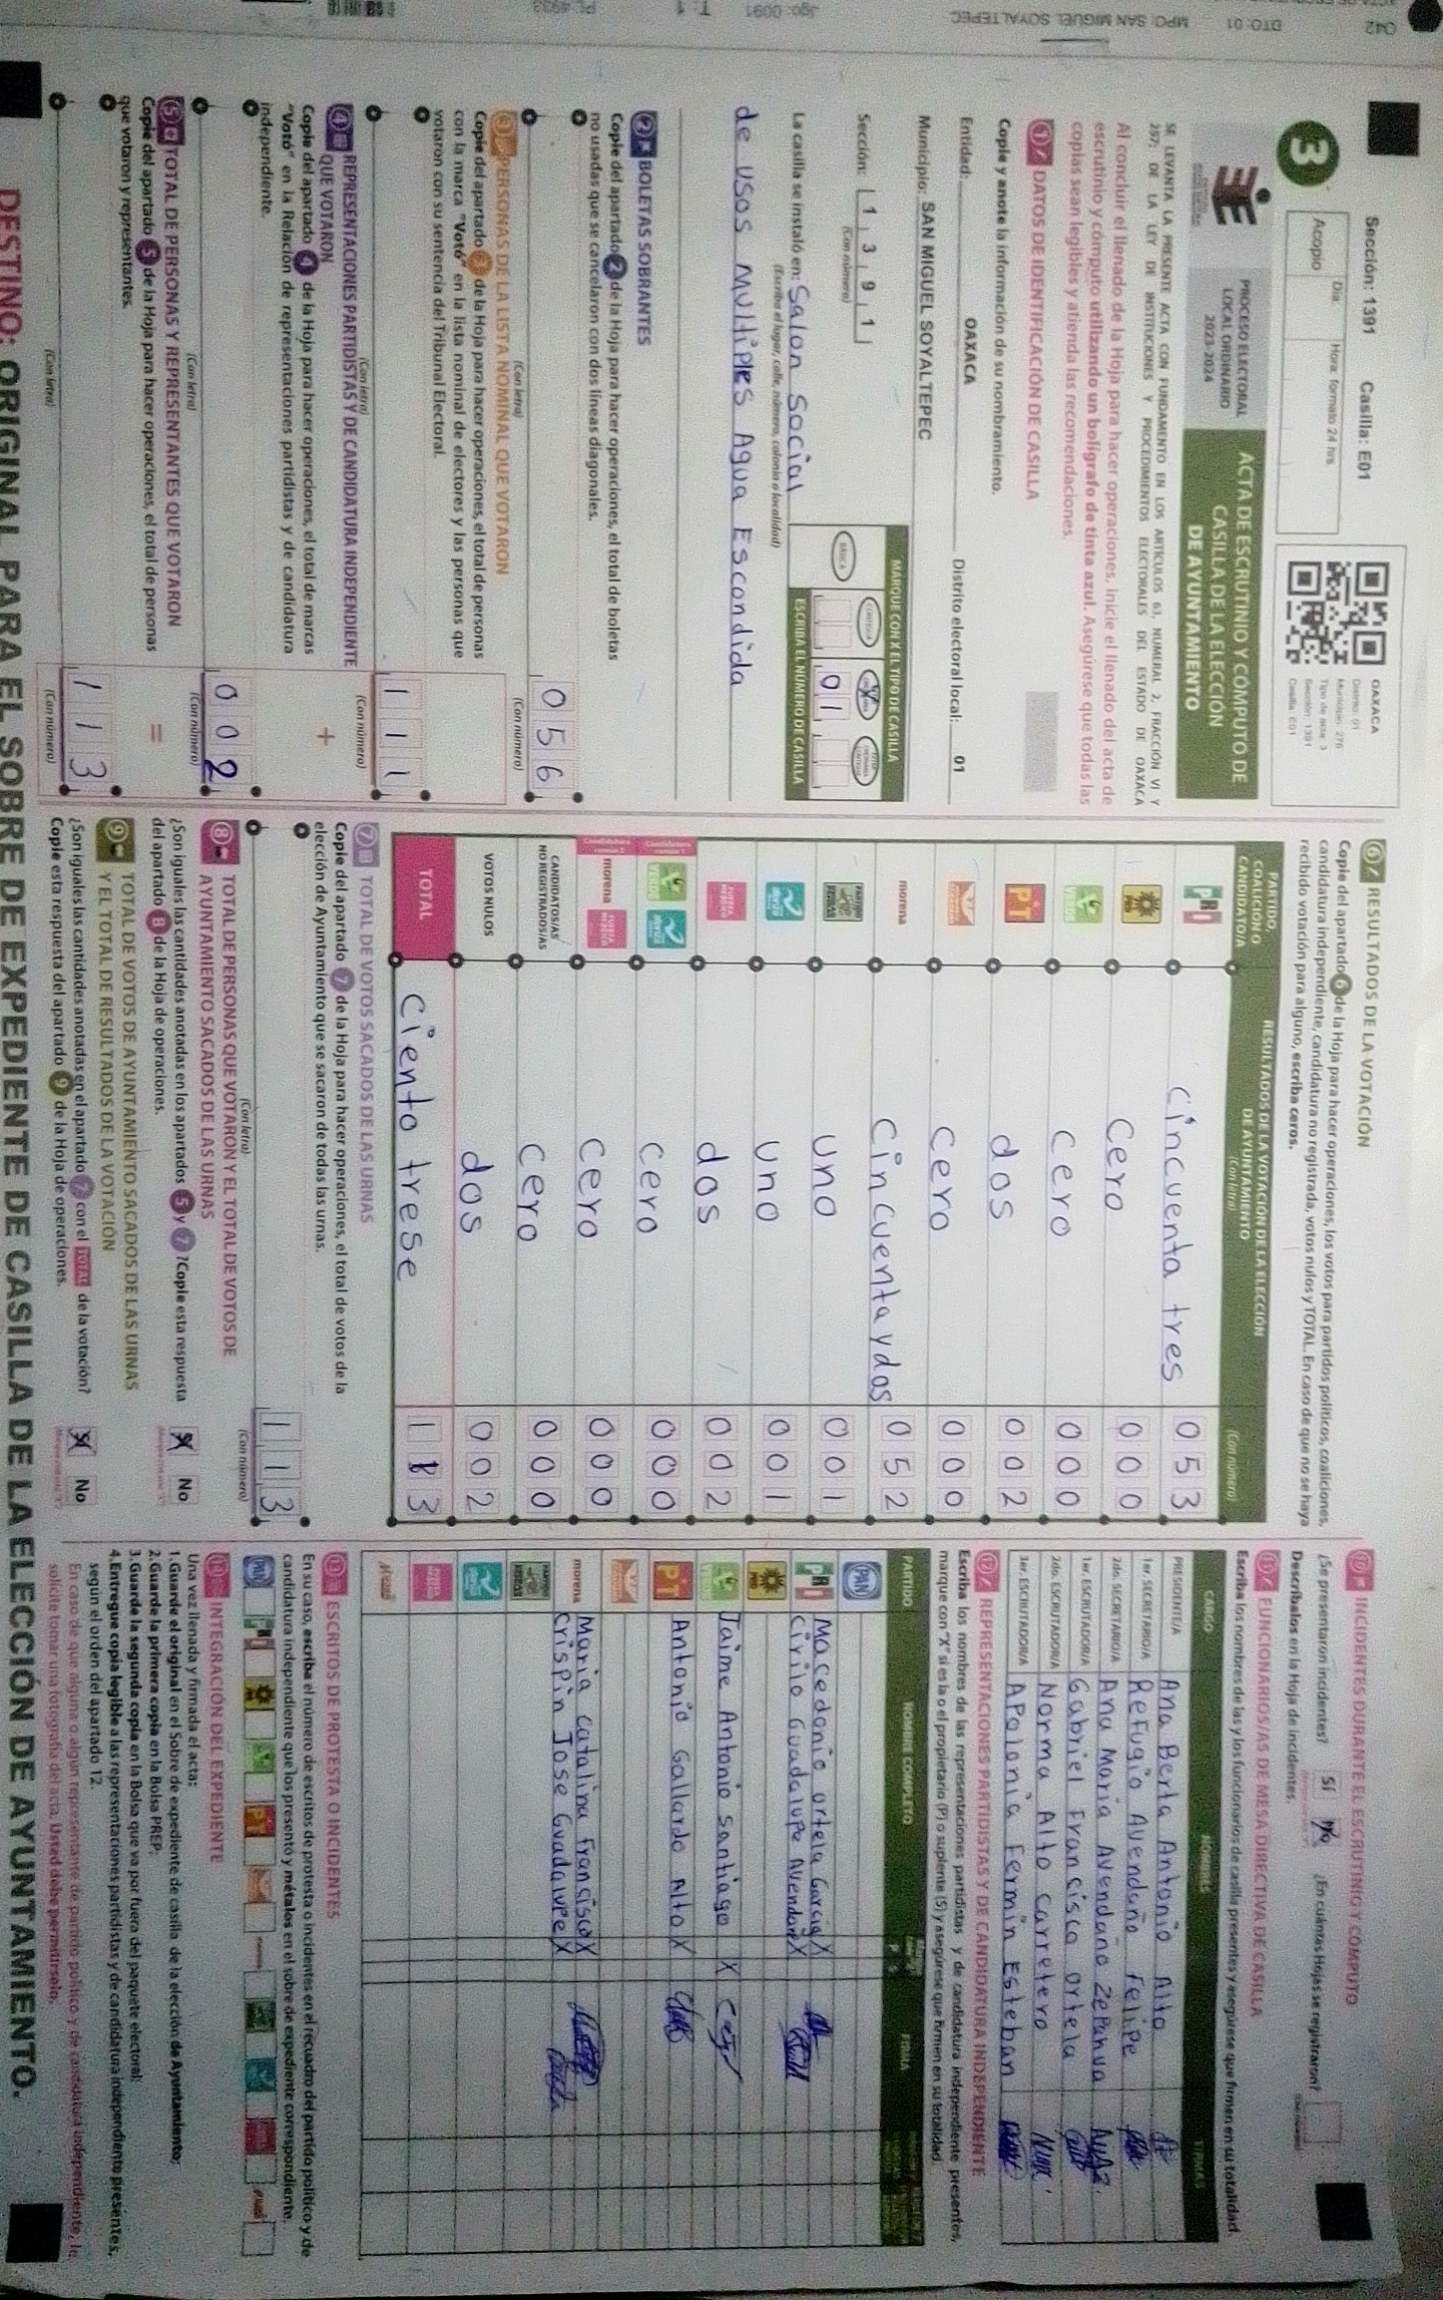 Sección: 1391 Casilla: E01
Día:
Hora: formato 24 hrs.
Acopio
3
OAXACA
Distrito: 01
Municipio: 276
Tipo de acta: 3
Sección: 1391
Casilla: E01
PROCESO ELECTORAL
LOCAL ORDINARIO
2023-2024
ACTA DE ESCRUTINIO Y CÓMPUTO DE
CASILLA DE LA ELECCIÓN
DE AYUNTAMIENTO
SE LEVANTA LA PRESENTE ACTA CON FUNDAMENTO EN LOS ARTÍCULOS 63, NUMERAL 2, FRACCIÓN VI Y
257; DE LA LEY DE INSTITUCIONES Y PROCEDIMIENTOS ELECTORALES DEL ESTADO DE OAXACA
Al concluir el llenado de la Hoja para hacer operaciones, inicie el llenado del acta de
escrutinio y cómputo utilizando un bolígrafo de tinta azul. Asegúrese que todas las
copias sean legibles y atienda las recomendaciones.
1 DATOS DE IDENTIFICACIÓN DE CASILLA
Copie y anote la información de su nombramiento.
Entidad: OAXACA Distrito electoral local: 01
Municipio: SAN MIGUEL SOYALTEPEC
Sección: 1 3 9 1
(Con número)
MARQUE CON X EL TIPO DE CASILLA
01
ESCRIBA EL NÚMERO DE CASILLA
La casilla se instaló en: Salon Social
(Escriba el lugar, calle, número, colonia o localidad)
de usos Multiples Agua Escondida
2 BOLETAS SOBRANTES
Copie del apartado 2 de la Hoja para hacer operaciones, el total de boletas
no usadas que se cancelaron con dos líneas diagonales.
056
(Con letra) (Con número)
3 PERSONAS DE LA LISTA NOMINAL QUE VOTARON
Copie del apartado 3 de la Hoja para hacer operaciones, el total de personas
con la marca "Votó" en la lista nominal de electores y las personas que
votaron con su sentencia del Tribunal Electoral.
111
(Con letra) (Con número)
4 REPRESENTACIONES PARTIDISTAS Y DE CANDIDATURA INDEPENDIENTE
QUE VOTARON
Copie del apartado 4 de la Hoja para hacer operaciones, el total de marcas
"Votó" en la Relación de representaciones partidistas y de candidatura
independiente.
+
002
(Con letra) (Con número)
5 TOTAL DE PERSONAS Y REPRESENTANTES QUE VOTARON
Copie del apartado 5 de la Hoja para hacer operaciones, el total de personas
que votaron y representantes.
=
113
(Con letra) (Con número)
6 RESULTADOS DE LA VOTACIÓN
Copie del apartado 6 de la Hoja para hacer operaciones, los votos para partidos políticos, coaliciones,
candidatura independiente, candidatura no registrada, votos nulos y TOTAL. En caso de que no se haya
recibido votación para alguno, escriba ceros.
PARTIDO, COALICIÓN O CANDIDATO/A
RESULTADOS DE LA VOTACIÓN DE LA ELECCIÓN
DE AYUNTAMIENTO
(Con letra) (Con número)
PRI cincuenta tres 053
PRD cero 000
VERDE cero 000
PT dos 002
cero 000
morena cincuenta y dos 052
uno 001
uno 001
dos 002
cero 000
morena cero 000
CANDIDATOS/AS NO REGISTRADOS/AS cero 000
VOTOS NULOS dos 002
TOTAL Ciento trese 113
7 TOTAL DE VOTOS SACADOS DE LAS URNAS
Copie del apartado 7 de la Hoja para hacer operaciones, el total de votos de la
elección de Ayuntamiento que se sacaron de todas las urnas.
113
(Con letra) (Con número)
8 TOTAL DE PERSONAS QUE VOTARON Y EL TOTAL DE VOTOS DE
AYUNTAMIENTO SACADOS DE LAS URNAS
¿Son iguales las cantidades anotadas en los apartados 5 y 7 ?Copie esta respuesta
del apartado 8 de la Hoja de operaciones.
No
9 TOTAL DE VOTOS DE AYUNTAMIENTO SACADOS DE LAS URNAS
Y EL TOTAL DE RESULTADOS DE LA VOTACIÓN
¿Son iguales las cantidades anotadas en el apartado 7 con el TOTAL de la votación?
Copie esta respuesta del apartado 9 de la Hoja de operaciones.
No
10 INCIDENTES DURANTE EL ESCRUTINIO Y CÓMPUTO
¿Se presentaron incidentes? Sí No ¿En cuántas Hojas se registraron?
Descríbalos en la Hoja de incidentes.
11 FUNCIONARIOS/AS DE MESA DIRECTIVA DE CASILLA
Escriba los nombres de las y los funcionarios de casilla presentes y asegúrese que firmen en su totalidad.
CARGO NOMBRES FIRMAS
PRESIDENTE/A Ana Berta Antonio Alto
1er. SECRETARIO/A Refugio Avendaño Felipe
2do. SECRETARIO/A Ana Maria Avendaño Zepahua
1er. ESCRUTADOR/A Gabriel Francisco Ortela
2do. ESCRUTADOR/A Norma Alto Carretero
3er. ESCRUTADOR/A Apolonia Fermin Esteban
12 REPRESENTACIONES PARTIDISTAS Y DE CANDIDATURA INDEPENDIENTE
Escriba los nombres de las representaciones partidistas y de candidatura independiente presentes,
marque con "X" si es la o el propietario (P) o suplente (S) y asegúrese que firmen en su totalidad.
PARTIDO NOMBRE COMPLETO FIRMA
PAN
PRI Macedonio Ortela Garcia X
Cirilo Guadalupe Avendaño X
PRD
VERDE Jaime Antonio Santiago X
PT Antonio Gallardo Alto X
morena Maria Catalina Fransisco X
Crispin Jose Guadalupe X
13 ESCRITOS DE PROTESTA O INCIDENTES
En su caso, escriba el número de escritos de protesta o incidentes en el recuadro del partido político y de
candidatura independiente que los presentó y métalos en el sobre de expediente correspondiente.
14 INTEGRACIÓN DEL EXPEDIENTE
Una vez llenada y firmada el acta:
1.Guarde el original en el Sobre de expediente de casilla de la elección de Ayuntamiento;
2.Guarde la primera copia en la Bolsa PREP;
3.Guarde la segunda copia en la Bolsa que va por fuera del paquete electoral;
4.Entregue copia legible a las representaciones partidistas y de candidatura independiente presentes,
según el orden del apartado 12.
En caso de que alguna o algún representante de partido político y de candidatura independiente, le
solicite tomar una fotografía del acta, Usted debe permitírselo.
DESTINO: ORIGINAL PARA EL SOBRE DE EXPEDIENTE DE CASILLA DE LA ELECCIÓN DE AYUNTAMIENTO.
042 DTO: 01 MPO: SAN MIGUEL SOYALTEPEC Jgo: 0091 T: 1 PL 4933